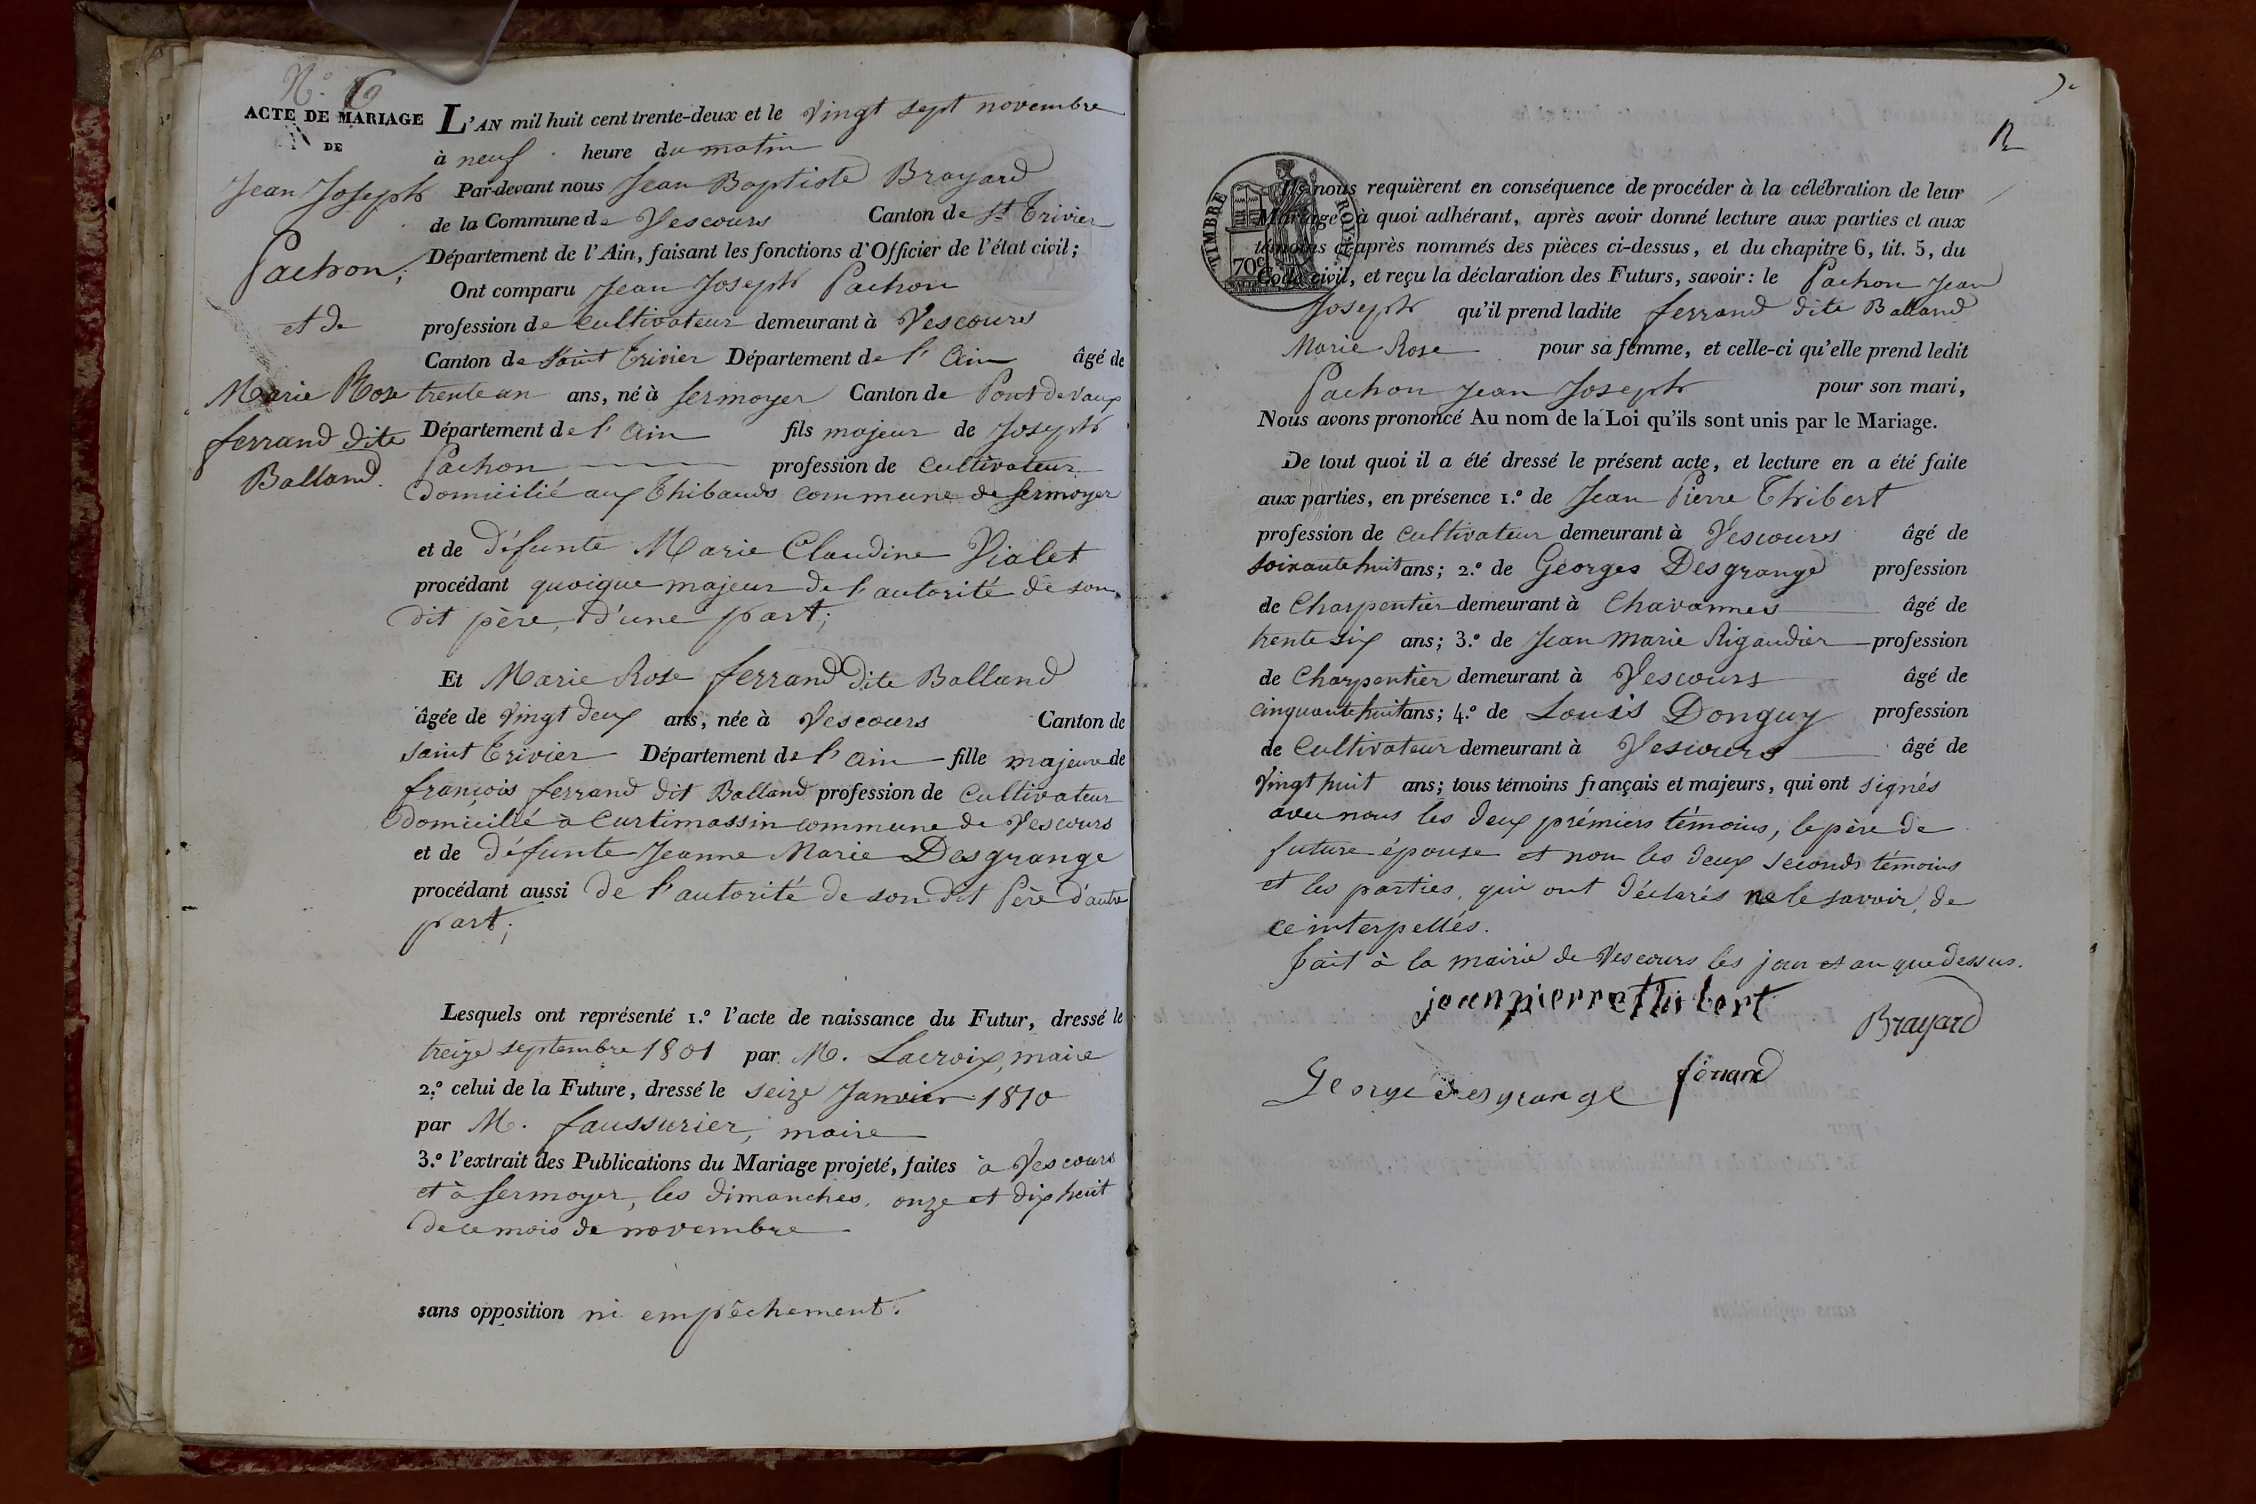 N.º 6
ACTE DE MARIAGE
DE
Jean Joseph
Pachon,
et de
Marie Rose
ferrand dite
Balland.
L'AN mil huit cent trente-deux et le vingt sept novembre
à neuf heure du matin
Par-devant nous Jean Baptiste Brayard
de la Commune de Vescours Canton de St Trivier
Département de l'Ain, faisant les fonctions d'Officier de l'état civil;
Ont comparu Jean Joseph Pachon
profession de cultivateur demeurant à Vescours
Canton de Saint Trivier Département de l'Ain âgé de
trente un ans, né à Sermoyer Canton de Pont de vaux
Département de l'Ain fils majeur de Joseph
Pachon profession de cultivateur
domicilié aux Thibauds commune de Sermoyer
et de défunte Marie Claudine Vialet
procédant quoique majeur de l'autorité de son
dit père, d'une part;
Et Marie Rose ferrand dite Balland
âgée de vingt deux ans, née à Vescours Canton de
saint Trivier Département de l'ain fille majeure de
françois ferrand dit Balland profession de cultivateur
domicilié à Curtimassin commune de Vescours
et de défunte Jeanne Marie Desgrange
procédant aussi de l'autorité de son dit Père d'autre
part;
Lesquels ont représenté 1.º l'acte de naissance du Futur, dressé le
treize septembre 1801 par M. Lacroix, maire
2.º celui de la Future, dressé le seize Janvier 1810
par M. faussurier, maire
3.º l'extrait des Publications du Mariage projeté, faites à Vescours
et à Sermoyer, les dimanches, onze et dix huit
de ce mois de novembre
sans opposition ni empêchement.
12
TIMBRE ROYAL
70c
Ils nous requièrent en conséquence de procéder à la célébration de leur
Mariage, à quoi adhérant, après avoir donné lecture aux parties et aux
témoins ci-après nommés des pièces ci-dessus, et du chapitre 6, tit. 5, du
Code civil, et reçu la déclaration des Futurs, savoir: le Pachon Jean
Joseph qu'il prend ladite ferrand dite Balland
Marie Rose pour sa femme, et celle-ci qu'elle prend ledit
Pachon Jean Joseph pour son mari,
Nous avons prononcé Au nom de la Loi qu'ils sont unis par le Mariage.
De tout quoi il a été dressé le présent acte, et lecture en a été faite
aux parties, en présence 1.º de Jean Pierre Thibert
profession de cultivateur demeurant à Vescours âgé de
soixante huit ans; 2.º de Georges Desgrange profession
de Charpentier demeurant à Chavannes âgé de
trente six ans; 3.º de Jean marie Rigaudier profession
de Charpentier demeurant à Vescours âgé de
cinquante huit ans; 4.º de Louis Donguy profession
de cultivateur demeurant à Vescours âgé de
vingt huit ans; tous témoins français et majeurs, qui ont signés
avec nous les deux prémiers témoins, le père de
future épouse et non les deux seconds témoins
et les parties, qui ont déclarés ne le savoir, de
ce interpellés.
fait à la mairie de Vescours les jour et an que dessus.
jeanpierrethibert
Brayard
George desgrange